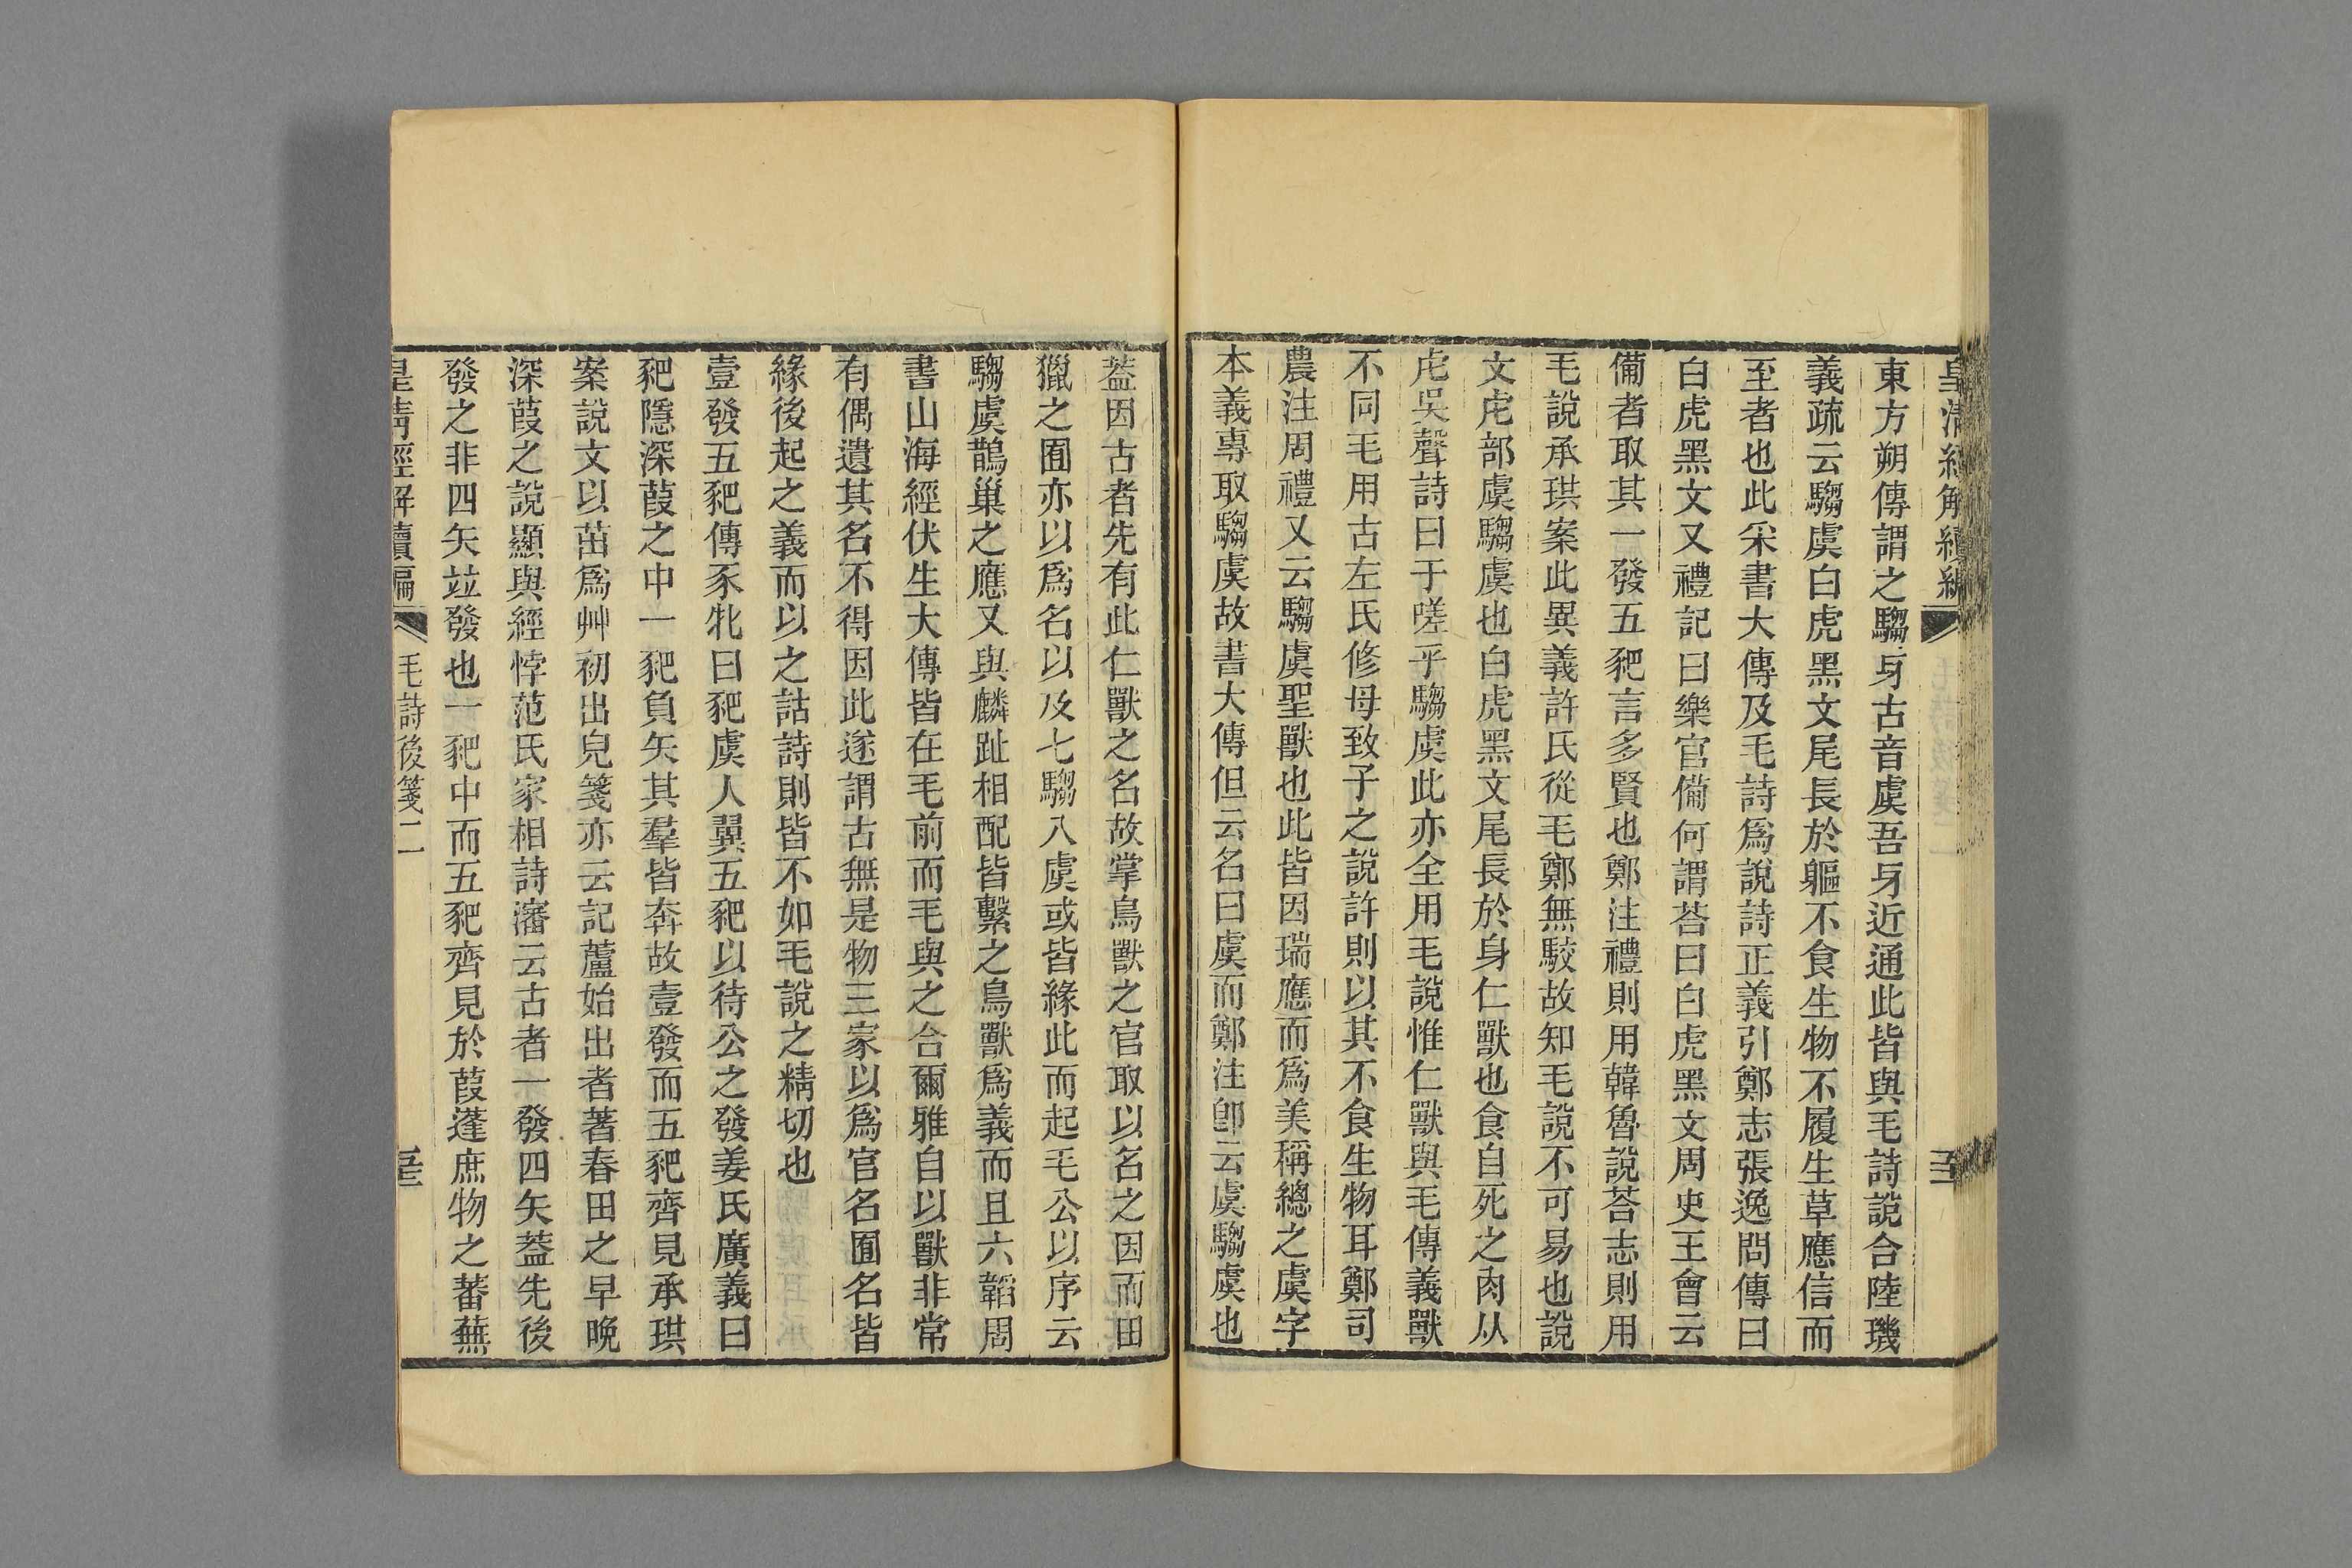 皇清經解續編
東方朔傳謂之騶牙古音虞吾牙近通此皆與毛詩說合陸璣
義疏云騶虞白虎黑文尾長於軀不食生物不履生草應信而
至者也此采書大傳及毛詩爲說詩正義引鄭志張逸問傳曰
白虎黑文又禮記曰樂官備何謂荅曰白虎黑文周史王會云
備者取其一發五豝言多賢也鄭注禮則用韓魯說荅志則用
毛說承珙案此異義許氏從毛鄭無駮故知毛說不可易也說
文虍部虞騶虞也白虎黑文尾長於身仁獸也食自死之肉从
虍吳聲詩曰于嗟乎騶虞此亦全用毛說惟仁獸與毛傳義獸
不同毛用古左氏修母致子之說許則以其不食生物耳鄭司
農注周禮又云騶虞聖獸也此皆因瑞應而爲美稱總之虞字
本義專取騶虞故書大傳但云名曰虞而鄭注卽云虞騶虞也
葢因古者先有此仁獸之名故掌鳥獸之官取以名之因而田
獵之囿亦以爲名以及七騶八虞或皆緣此而起毛公以序云
騶虞鵲巢之應又與麟趾相配皆繫之鳥獸爲義而且六韜周
書山海經伏生大傳皆在毛前而毛與之合爾雅自以獸非常
有偶遺其名不得因此遂謂古無是物三家以爲官名囿名皆
緣後起之義而以之詁詩則皆不如毛說之精切也
壹發五豝傳豕牝曰豝虞人翼五豝以待公之發姜氏廣義曰
豝隱深葭之中一豝負矢其羣皆奔故壹發而五豝齊見承珙
案說文以茁爲艸初出皃箋亦云記蘆始出者著春田之早晚
深葭之說顯與經悖范氏家相詩瀋云古者一發四矢葢先後
發之非四矢竝發也一豝中而五豝齊見於葭蓬庶物之蕃蕪
皇清經解續編
毛詩後箋二